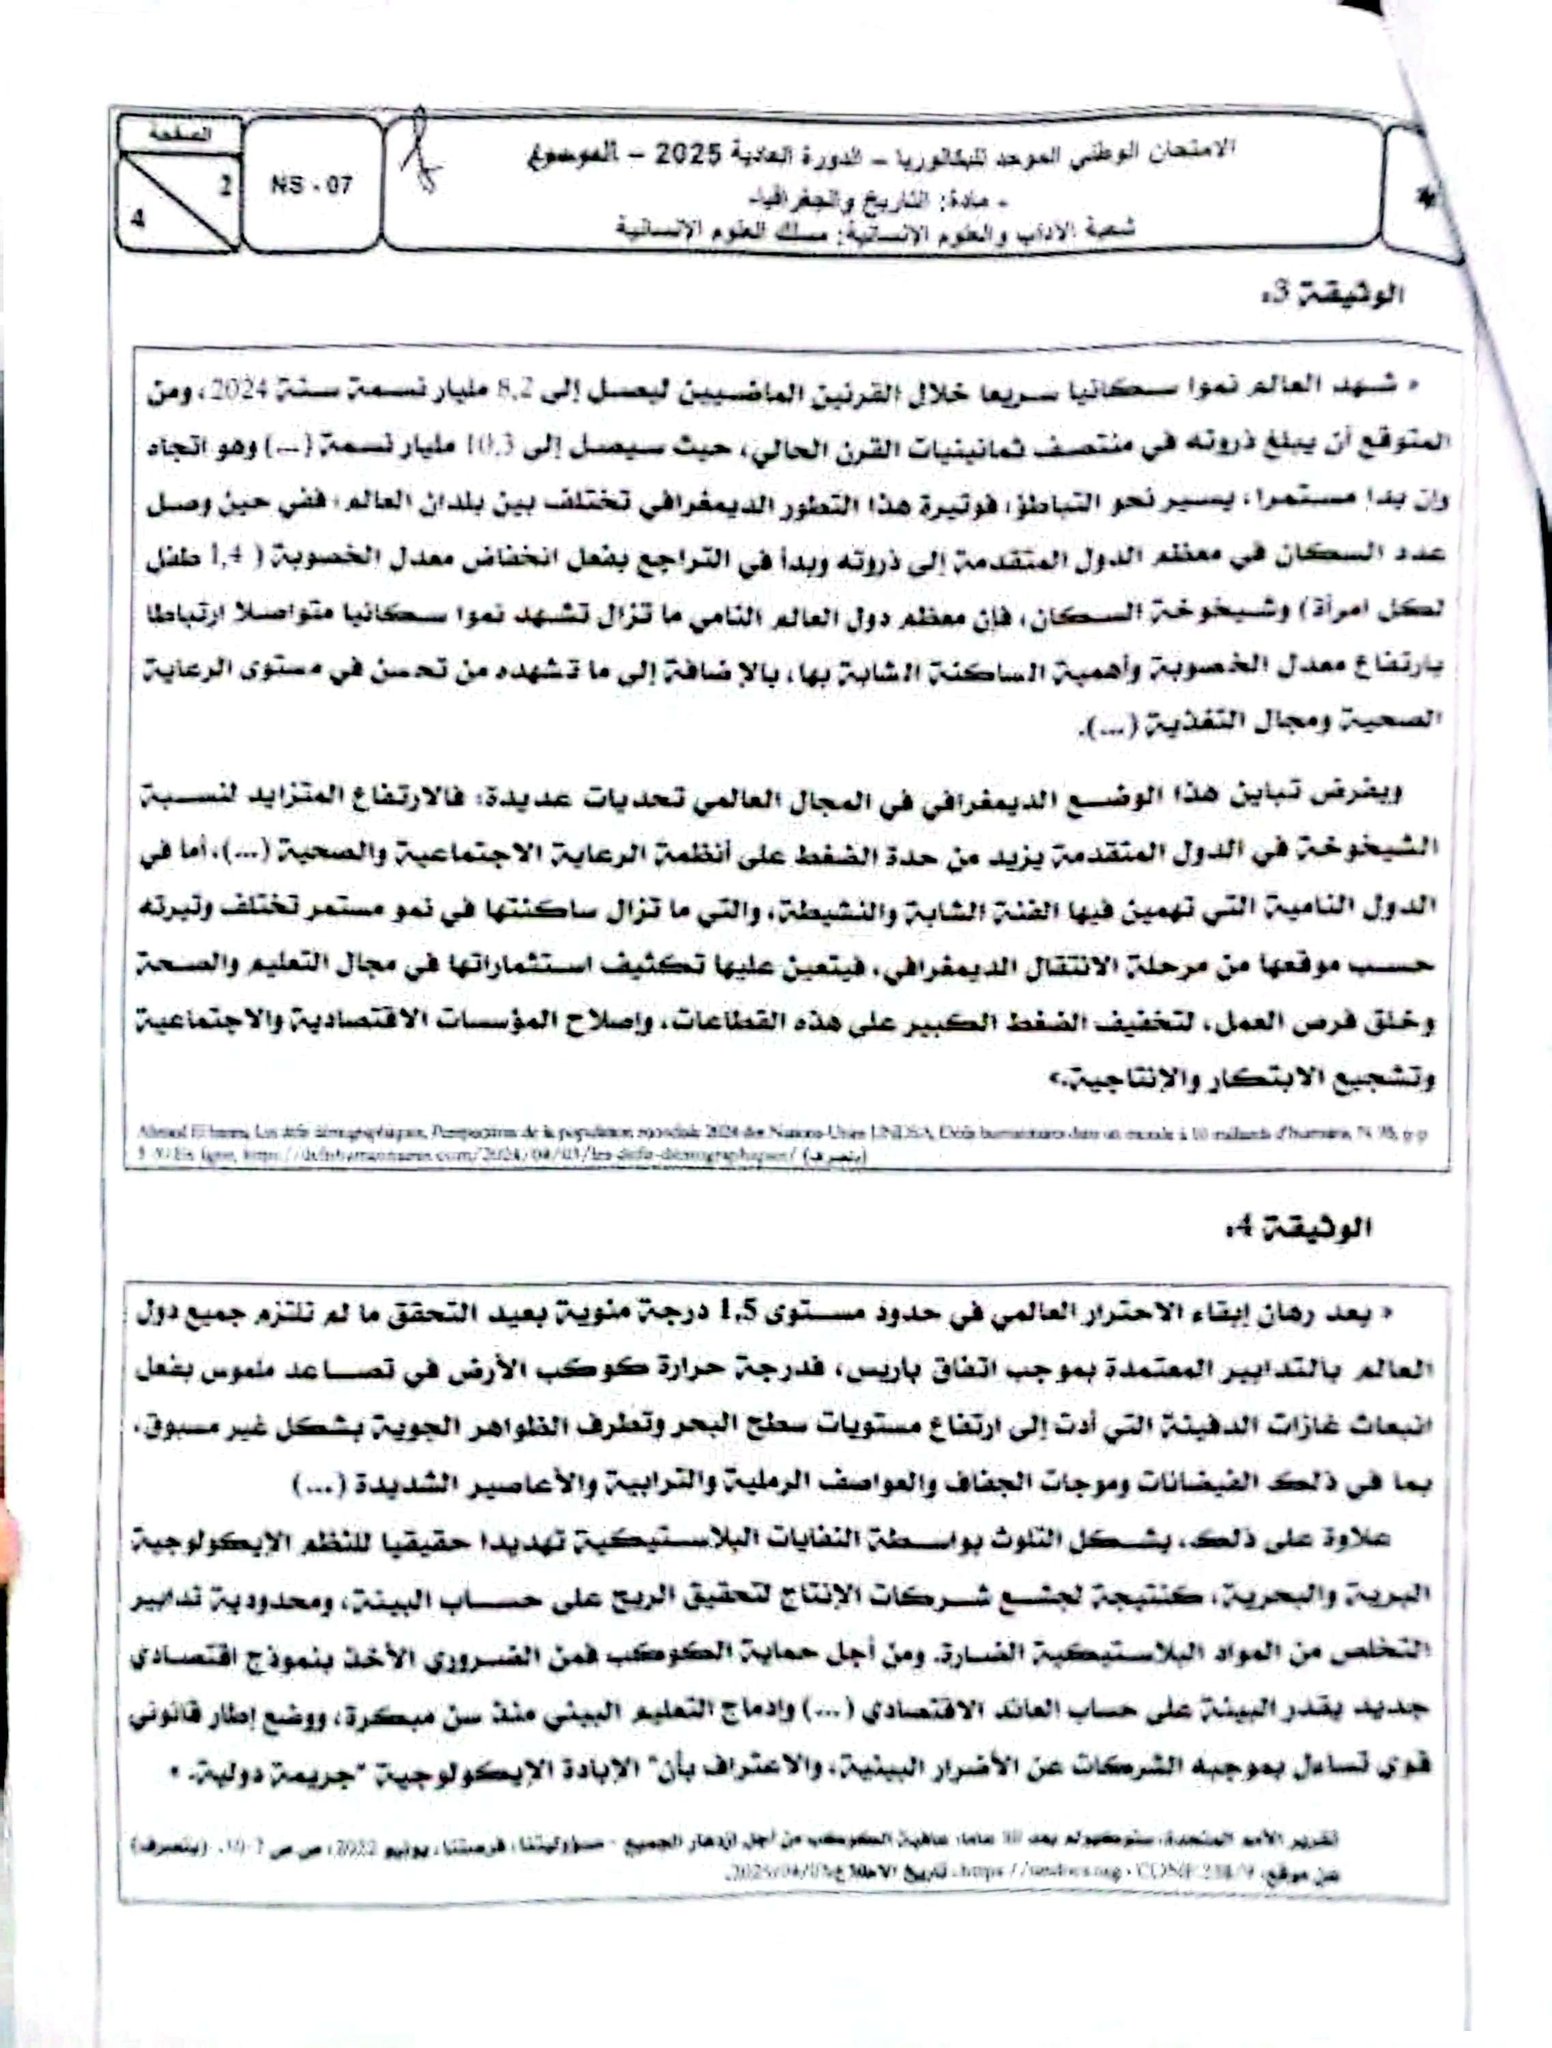 الامتحان الوطني الموحد للبكالوريا – الدورة العادية 2025 – الموضوع
- مادة: التاريخ والجغرافيا-
شعبة الآداب والعلوم الإنسانية: مسلك العلوم الإنسانية
NS - 07
الصفحة
2
4
الوثيقة 3:
« شهد العالم نموا سكانيا سريعا خلال القرنين الماضيين ليصل إلى 8,2 مليار نسمة سنة 2024، ومن
المتوقع أن يبلغ ذروته في منتصف ثمانينيات القرن الحالي، حيث سيصل إلى 10,3 مليار نسمة (...) وهو اتجاه
وإن بدا مستمرا، يسير نحو التباطؤ؛ فوتيرة هذا التطور الديمغرافي تختلف بين بلدان العالم، ففي حين وصل
عدد السكان في معظم الدول المتقدمة إلى ذروته وبدأ في التراجع بفعل انخفاض معدل الخصوبة ( 1,4 طفل
لكل امرأة) وشيخوخة السكان، فإن معظم دول العالم النامي ما تزال تشهد نموا سكانيا متواصلا ارتباطا
بارتفاع معدل الخصوبة وأهمية الساكنة الشابة بها، بالإضافة إلى ما تشهده من تحسن في مستوى الرعاية
الصحية ومجال التغذية (...).
ويفرض تباين هذا الوضع الديمغرافي في المجال العالمي تحديات عديدة؛ فالارتفاع المتزايد لنسبة
الشيخوخة في الدول المتقدمة يزيد من حدة الضغط على أنظمة الرعاية الاجتماعية والصحية (...)، أما في
الدول النامية التي تهمين فيها الفئة الشابة والنشيطة، والتي ما تزال ساكنتها في نمو مستمر تختلف وتيرته
حسب موقعها من مرحلة الانتقال الديمغرافي، فيتعين عليها تكثيف استثماراتها في مجال التعليم والصحة
وخلق فرص العمل، لتخفيف الضغط الكبير على هذه القطاعات، وإصلاح المؤسسات الاقتصادية والاجتماعية
وتشجيع الابتكار والإنتاجية.»
Les défis démographiques, Perspectives de la population mondiale 2024 des Nations-Unies UNDESA, Défis humanitaires dans un monde à 10 milliards d'humains, N
En ligne, (بتصرف)
الوثيقة 4:
« يعد رهان إبقاء الاحترار العالمي في حدود مستوى 1,5 درجة مئوية بعيد التحقق ما لم تلتزم جميع دول
العالم بالتدابير المعتمدة بموجب اتفاق باريس، فدرجة حرارة كوكب الأرض في تصاعد ملموس بفعل
انبعاث غازات الدفيئة التي أدت إلى ارتفاع مستويات سطح البحر وتطرف الظواهر الجوية بشكل غير مسبوق،
بما في ذلك الفيضانات وموجات الجفاف والعواصف الرملية والترابية والأعاصير الشديدة (...)
علاوة على ذلك، يشكل التلوث بواسطة النفايات البلاستيكية تهديدا حقيقيا للنظم الإيكولوجية
البرية والبحرية، كنتيجة لجشع شركات الإنتاج لتحقيق الربح على حساب البيئة، ومحدودية تدابير
التخلص من المواد البلاستيكية الضارة. ومن أجل حماية الكوكب فمن الضروري الأخذ بنموذج اقتصادي
جديد يقدر البيئة على حساب العائد الاقتصادي (...) وإدماج التعليم البيئي منذ سن مبكرة، ووضع إطار قانوني
قوي تساءل بموجبه الشركات عن الأضرار البيئية، والاعتراف بأن" الإبادة الإيكولوجية "جريمة دولية. »
تقرير الأمم المتحدة، ستوكهولم بعد 50 عاما: عافية الكوكب من أجل ازدهار الجميع - مسؤوليتنا، فرصتنا، يونيو 2022، ص ص (بتصرف)
عن موقع، تاريخ الاطلاع